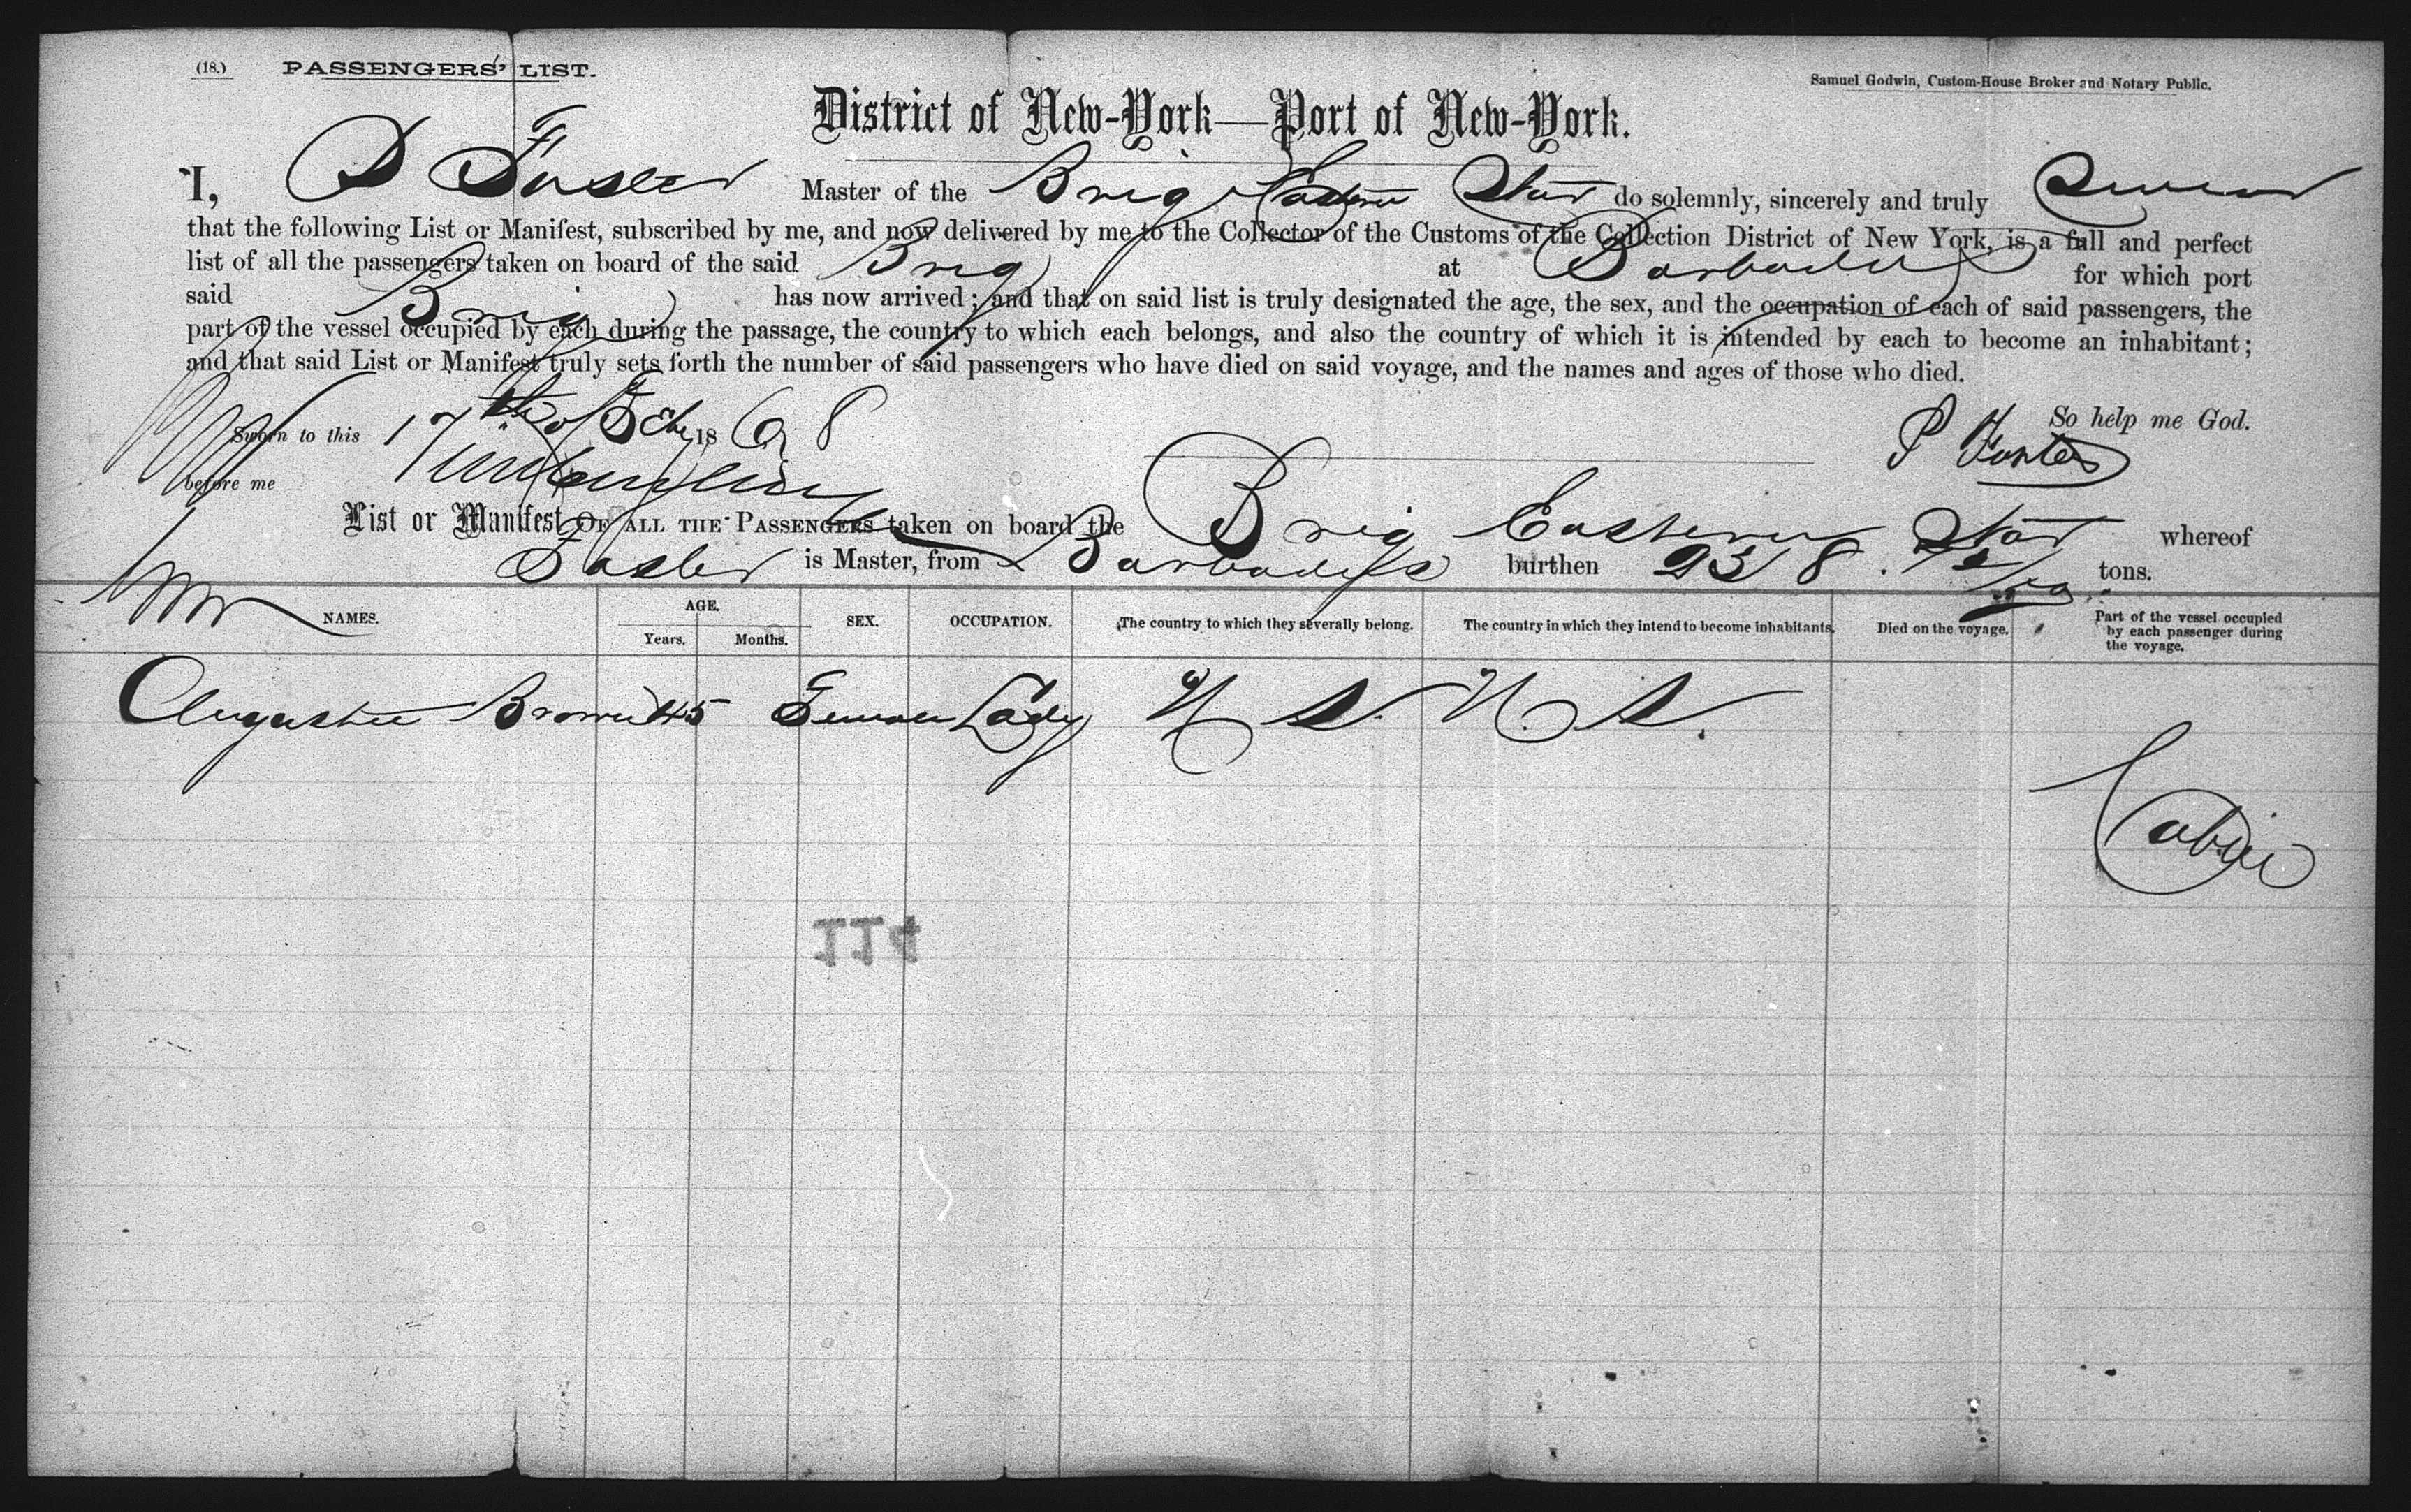 (18.) PASSENGERS' LIST.
Samuel Godwin, Custom-House Broker and Notary Public.
District of New-York—Port of New-York.
I, Foster Master of the Brig Eastern Star do solemnly, sincerely and truly Swear
that the following List or Manifest, subscribed by me, and now delivered by me to the Collector of the Customs of the Collection District of New York, is a full and perfect
list of all the passengers taken on board of the said Brig at Barbados for which port
said Brig has now arrived; and that on said list is truly designated the age, the sex, and the occupation of each of said passengers, the
part of the vessel occupied by each during the passage, the country to which each belongs, and also the country of which it is intended by each to become an inhabitant;
and that said List or Manifest truly sets forth the number of said passengers who have died on said voyage, and the names and ages of those who died.
So help me God.
Sworn to this 17th of Feby 1868
P Foster
before me
List or Manifest OF ALL THE PASSENGERS taken on board the Brig Eastern Star whereof
Foster is Master, from Barbados burthen tons.
NAMES. AGE. Years. Months. SEX. OCCUPATION. The country to which they severally belong. The country in which they intend to become inhabitants. Died on the voyage. Part of the vessel occupied by each passenger during the voyage.
Brown 45 Female Lady U S. U. S.
Cabin
114